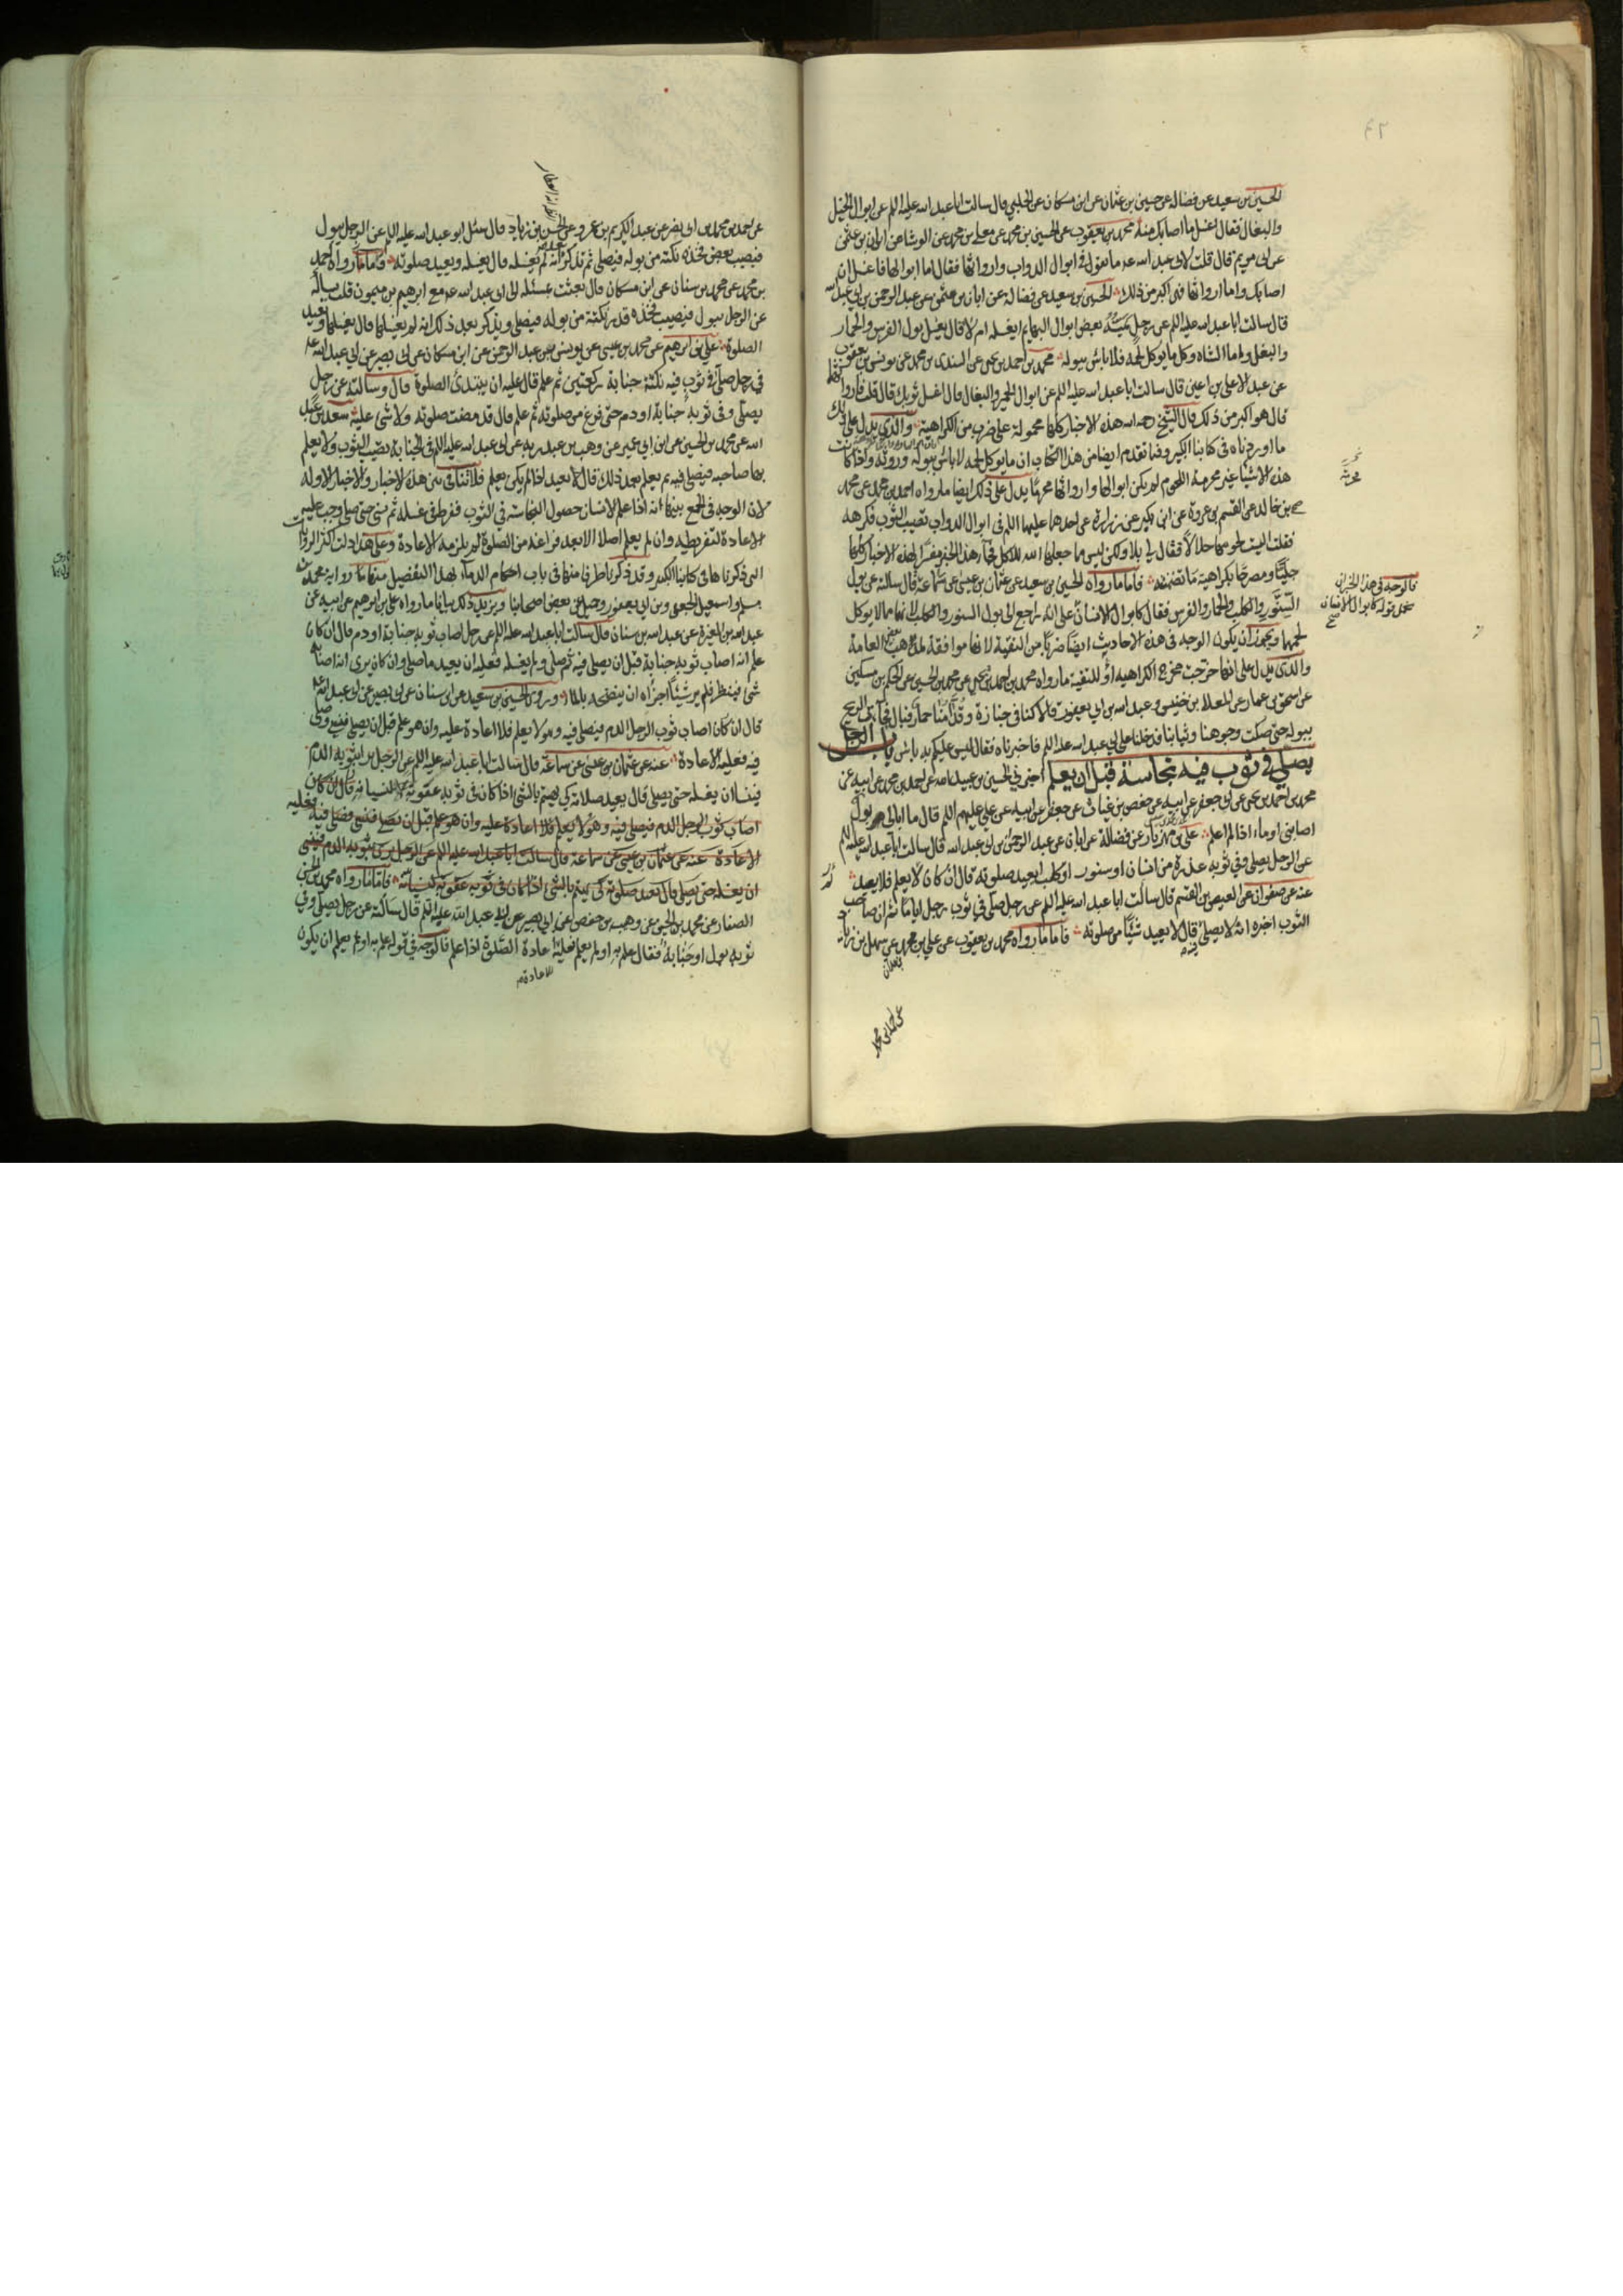 الحسين بن سعيد عن فضالة عن حسين بن عثمان عن ابن مسكان عن الحلبي قال سالت ابا عبد الله عليه السلم عن ابوال الخيل
والبغال فقال اغسل ما اصابك منه محمد بن يعقوب عن الحسين بن محمد عن معلى بن محمد عن الوشا عن ابان بن عثمن
عن ابي مريم قال قلت لابي عبد الله عه ما تقول في ابوال الدواب واروثها فقال اما ابوالها فاغسل ان
اصابك واما ارواثها فهي اكبر من ذلك الحسين بن سعيد عن فضالة عن ابان بن عثمن عن عبد الرحمن بن ابي عبد الله
قال سالت ابا عبد الله عليه السلم عن رجل يمسه بعض ابوال البهايم ايغسله ام لا قال يغسل بول الفرس والحمار
والبغل واما الشاة وكل ما يوكل لحمه فلا باس ببوله محمد بن احمد بن يحيى عن السندي بن محمد عن يونس بن يعقوب
عن عبد الاعلى بن اعين قال سالت ابا عبد الله عليه السلم عن ابوال الحمير والبغال قال اغسل ثوبك قال قلت فارواثها
قال هو اكبر من ذلك قال الشيخ رحمه الله هذه الاخبار كلها محمولة على ضرب من الكراهية والذي يدل على ذلك
ما اوردناه في كتابنا الكبير وفيما تقدم ايضا من هذا الكتاب ان ما يوكل لحمه لا باس ببوله وروثه واذا كانت
هذه الاشياء غير محرمة اللحوم لم يكن ابوالها وارواثها محرما يدل على ذلك ايضا ما رواه احمد بن محمد عن محمد
بن خالد عن القسم بن عروة عن ابن بكير عن زرارة عن احدهما عليهما السلم في ابوال الدواب تصيب الثوب فكرهه
فقلت اليست لحومها حلالا فقال لي بلا ولكن ليس مما جعلها الله للاكل فجاء هذا الخبر مفسرا لهذه الاخبار كلها
جليا ومصرحا بكراهية ما تضمنته فاما ما رواه الحسين بن سعيد عن عثمان بن عيسى عن سماعة قال سالته عن بول
السنور والكلب والحمار والفرس فقال كابوال الانسان على انه راجع الى بول السنور والكلب لانهما مما لا يوكل
لحمهما ويجوز ان يكون الوجه في هذه الاحاديث ايضا ضربا من التقية لانها موافقة لمذهب بعض العامة
والذي يدل على انها خرجت مخرج الكراهية او للتقية ما رواه محمد بن احمد بن يحيى عن محمد بن الحسين عن الحكم بن مسكين
عن اسحق بن عمار عن المعلا بن خنيس وعبد الله بن ابي يعفور قالا كنا في جنازة وقدامنا حمار فبال فجاءت الريح
ببوله حتى صكت وجوهنا وثيابنا فدخلنا على ابي عبد الله عليه السلم فاخبرناه فقال ليس عليكم به باس باب الرجل
يصلي في ثوب فيه نجاسة قبل ان يعلم اخبرني الحسين بن عبيد الله عن احمد بن محمد عن ابيه عن
محمد بن احمد بن يحيى عن ابي جعفر عن ابيه عن حفص بن غياث عن جعفر عن ابيه عن علي عليهم السلم قال ما ابالي ابول
اصابني او ماء اذا لم اعلم علي بن مهزيار عن فضالة عن ابان عن عبد الرحمن بن ابي عبد الله قال سالت ابا عبد الله عليه السلم
عن الرجل يصلي وفي ثوبه عذرة من انسان او سنور او كلب ايعيد صلوته قال ان كان لا يعلم فلا يعيد
عنه عن صفوان عن العيص بن القسم قال سالت ابا عبد الله عليه السلم عن رجل صلى في ثوب رجل اياما ثم ان صاحب
الثوب اخبره انه لا يصلي فيه قال لا يعيد شيئا من صلوته فاما ما رواه محمد بن يعقوب عن علي بن محمد عن سهل بن زياد
فالوجه في هذا الخبر ان
نحمل قوله كابوال الانسان
صح
عن احمد بن محمد بن ابي نصر عن عبد الكريم بن عمرو عن الحسن بن زياد قال سئل ابو عبد الله عليه السلم عن الرجل يبول
فيصيب بعض فخذه نكتة من بوله فيصلي ثم تذكر انه لم يغسله قال يغسله ويعيد صلوته فاما ما رواه احمد
بن محمد عن محمد بن سنان عن ابن مسكان قال بعثت بمسئلة الى ابي عبد الله عه مع ابرهيم بن ميمون قلت سأله
عن الرجل يبول فيصيب فخذه قدر نكتة من بوله فيصلي ويذكر بعد ذلك انه لم يغسلها قال يغسلها ويعيد
الصلوة علي بن ابرهيم عن محمد بن عيسى عن يونس بن عبد الرحمن عن ابن مسكان عن ابي بصير عن ابي عبد الله عه
في رجل صلى في ثوب فيه نكتة جنابة ركعتين ثم علم قال عليه ان يبتدئ الصلوة قال وسالته عن رجل
يصلي وفي ثوبه جنابة او دم حتى فرغ من صلوته ثم علم قال قد مضت صلوته ولا شئ عليه سعد بن عبد
الله عن محمد بن الحسين عن ابن ابي عمير عن وهب بن عبد ربه عن ابي عبد الله عليه السلم في الجنابة تصيب الثوب ولا يعلم
بها صاحبه فيصلي فيه ثم يعلم بعد ذلك قال لا يعيد اذا لم يكن يعلم فلا تنافي بين هذه الاخبار والاخبار الاوله
لان الوجه في الجمع بينها انه اذا علم الانسان حصول النجاسة في الثوب ففرط في غسله ثم نسي حتى صلى وجب عليه
الاعادة لتفريطه وان لم يعلم اصلا الا بعد فراغه من الصلوة لم يلزمه الاعادة وعلى هذا دلت اكثر الروايات
التي ذكرناها في كتابنا الكبير وقد ذكرنا طرفا منها في باب احكام الدماء بهذا التفصيل منها ما رواية محمد بن
مسلم واسمعيل الجعفي وبن ابي يعفور وجميل عن بعض اصحابنا ويزيد ذلك بيانا ما رواه علي بن ابرهيم عن ابيه عن
عبد الله بن المغيرة عن عبد الله بن سنان قال سالت ابا عبد الله عليه السلم عن رجل اصاب ثوبه جنابة او دم قال ان كان
علم انه اصاب ثوبه جنابة قبل ان يصلي فيه ثم صلى ولم يغسله فعليه ان يعيد ما صلى وان كان يرى انه اصابه
شئ فينظر فلم ير شيئا اجزاه ان ينضحه بالماء وروى الحسين بن سعيد عن ابن سنان عن ابي بصير عن ابي عبد الله عه
قال ان كان اصاب ثوب الرجل الدم فيصلي فيه وهو لا يعلم فلا اعادة عليه وان هو علم قبل ان يصلي فنسي وصلى
فيه فعليه الاعادة عنه عن عثمان بن عيسى عن سماعة قال سالت ابا عبد الله عليه السلم عن الرجل يرا بثوبه الدم
فينسا ان يغسله حتى يصلي قال يعيد صلاته كي يهتم بالشئ اذا كان في ثوبه عقوبة لنسيانه قال ان كان
اصاب ثوب الرجل الدم فيصلي فيه وهو لا يعلم فلا اعادة عليه وان هو علم قبل ان يصلي فنسي فصلى فيه فعليه
الاعادة عنه عن عثمان بن عيسى عن سماعة قال سالت ابا عبد الله عليه السلم عن الرجل يرى بثوبه الدم فينسى
ان يغسله حتى يصلي قال يعيد صلوته كي يهتم بالشئ اذا كان في ثوبه عقوبة لنسيانه فاما ما رواه محمد بن الحسن
الصفار عن محمد بن الحسين عن وهيب بن حفص عن ابي بصير عن ابي عبد الله عليه السلم قال سالته عن رجل يصلي وفي
ثوبه بول او جنابة فقال علم به او لم يعلم فعليه اعادة الصلوة اذا علم فالوجه في قوله علم به او لم يعلم ان يكون